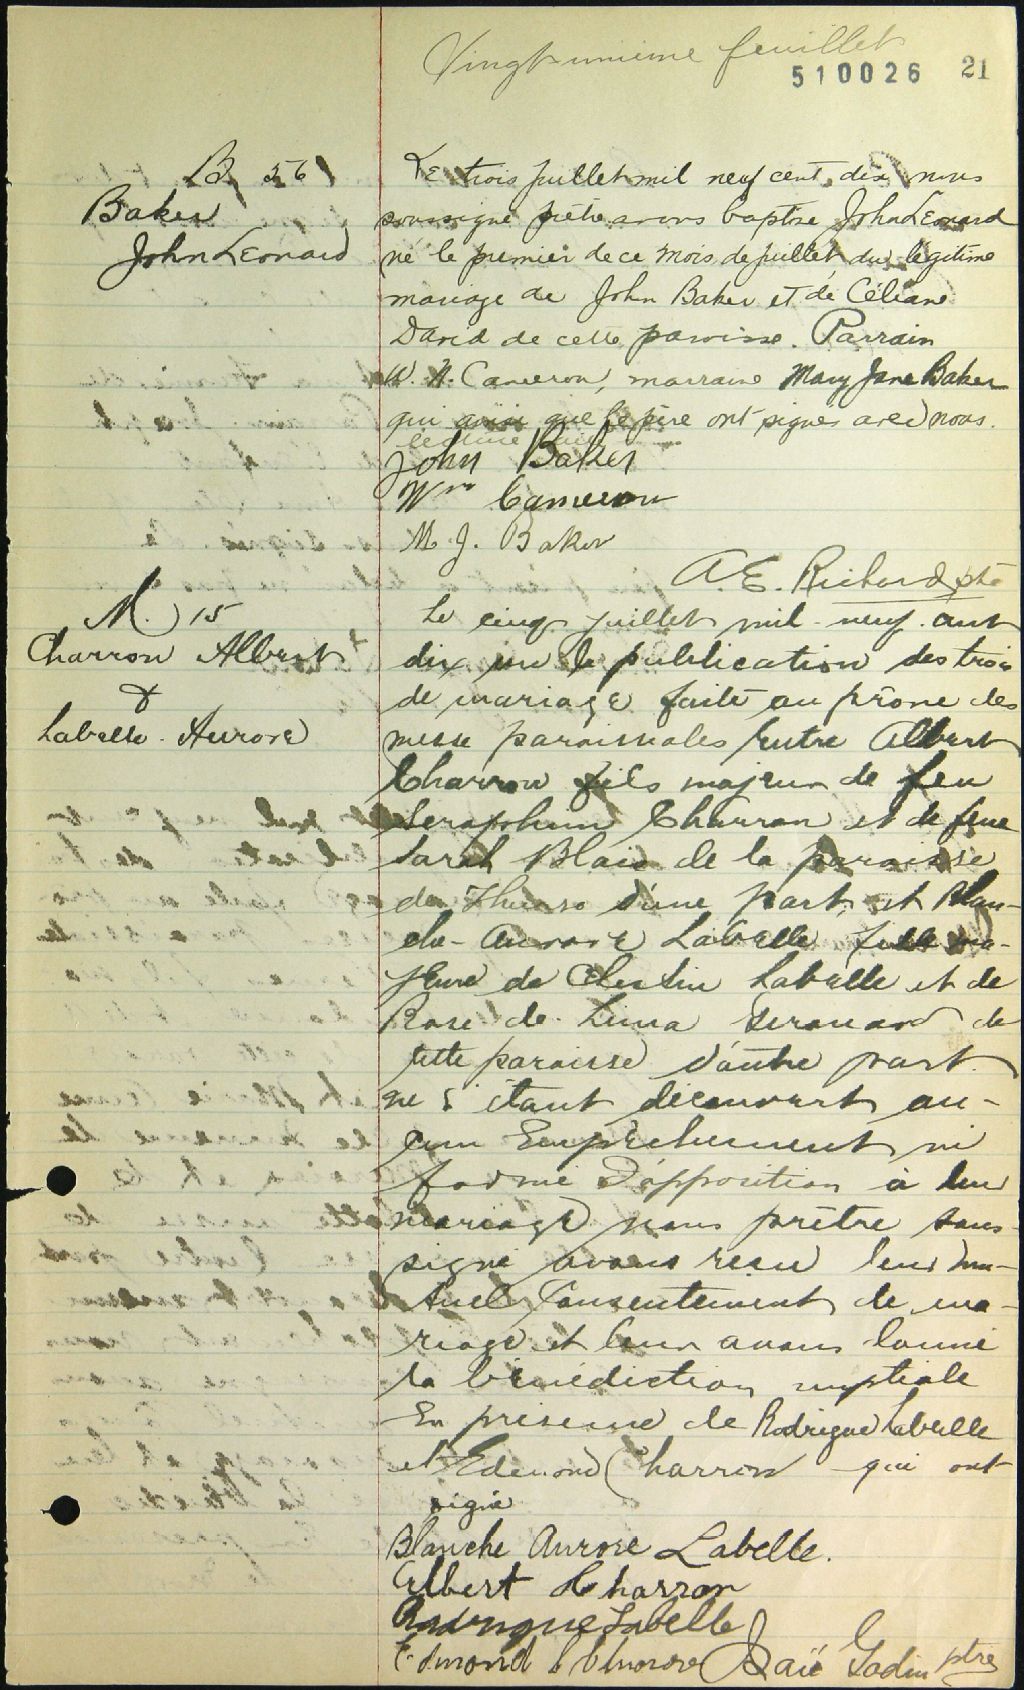 Vingt-unième feuillet
510026 21
B. 56
Baker
John Leonard
Le trois juillet mil neuf cent dix nous
soussigné prêtre avons baptisé John Leonard
né le premier de ce mois de juillet du légitime
mariage de John Baker et de Céliane
David de cette paroisse. Parrain
W. H. Cameron, marraine Mary Jane Baker
qui ainsi que le père ont signés avec nous.
lecture faite
John Baker
Wm Cameron
M. J. Baker
A. E. Richard ptre
M. 15
Charron Albert
&
Labelle Aurore
Le cinq juillet mil neuf cent
dix vu la publication des trois
de mariage faite au prône des
messe paroissiales entre Albert
Charron fils majeur de feu
Seraphim Charron et de feue
Sarah Blais de la paroisse
de Thurso d'une part, et Blan-
che Aurore Labelle fille ma-
jeure de Célestin Labelle et de
Rose de Lima Girouard de
cette paroisse d'autre part.
ne s'étant découvert au-
cun Empêchement ni
formé d'opposition à leur
mariage nous prêtre sous-
signé avons reçu leur mu-
tuel Consentement de ma-
riage et leur avons donné
la bénédiction nuptiale
En présence de Rodrigue Labelle
et Edmond Charron qui ont
signé
Blanche Aurore Labelle.
Albert Charron
Rodrigue Labelle
Edmond Charron Isaïe Godin ptre